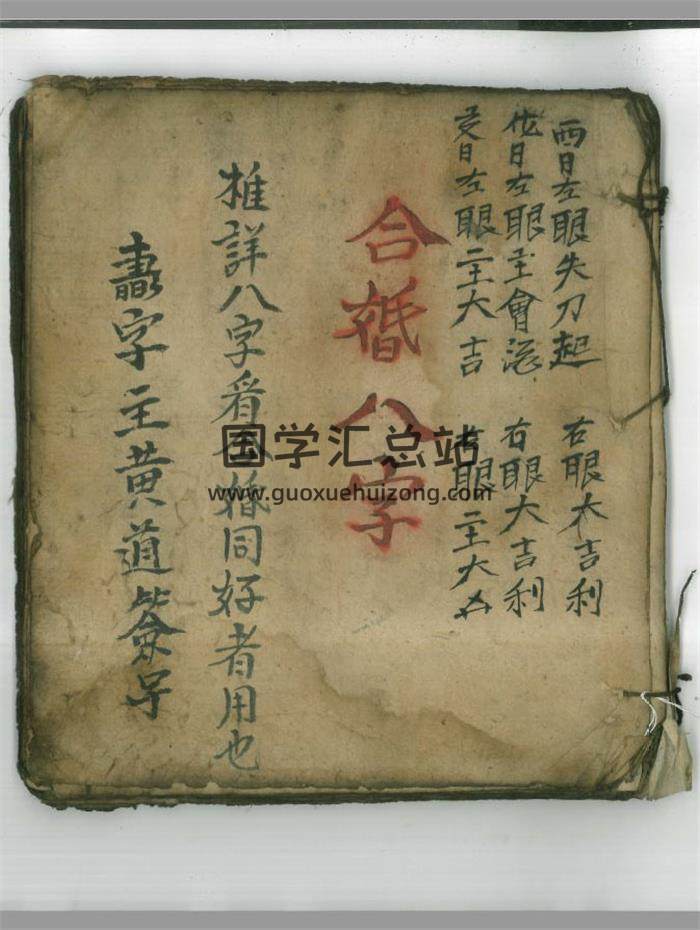 酉日左眼失刀起 右眼大吉利
戌日左眼主會 右眼大吉利
亥日左眼主大吉 右眼主大凶
合婚八字
推詳八字看合婚同好者用也
字主黃道
国学汇总站
www.guoxuehuizong.com